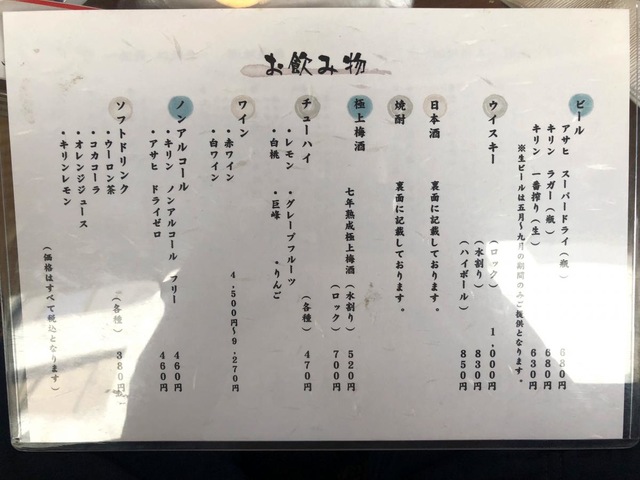 お飲み物
ビール
アサヒ スーパードライ（瓶） 680円
キリン ラガー（瓶） 680円
キリン 一番搾り（生） 630円
※生ビールは五月～九月の期間のみご提供となります。
ウイスキー
（ロック） 1,000円
（水割り） 830円
（ハイボール） 850円
日本酒 裏面に記載しております。
焼酎 裏面に記載しております。
極上梅酒
七年熟成極上梅酒（水割り） 520円
（ロック） 700円
チューハイ （各種） 470円
・レモン ・グレープフルーツ
・白桃 ・巨峰 ・りんご
ワイン
・赤ワイン 4,500円～9,270円
・白ワイン
ノンアルコール
・キリン ノンアルコール フリー 460円
・アサヒ ドライゼロ 460円
ソフトドリンク （各種） 380円
・ウーロン茶
・コカコーラ
・オレンジジュース
・キリンレモン
（価格はすべて税込となります）